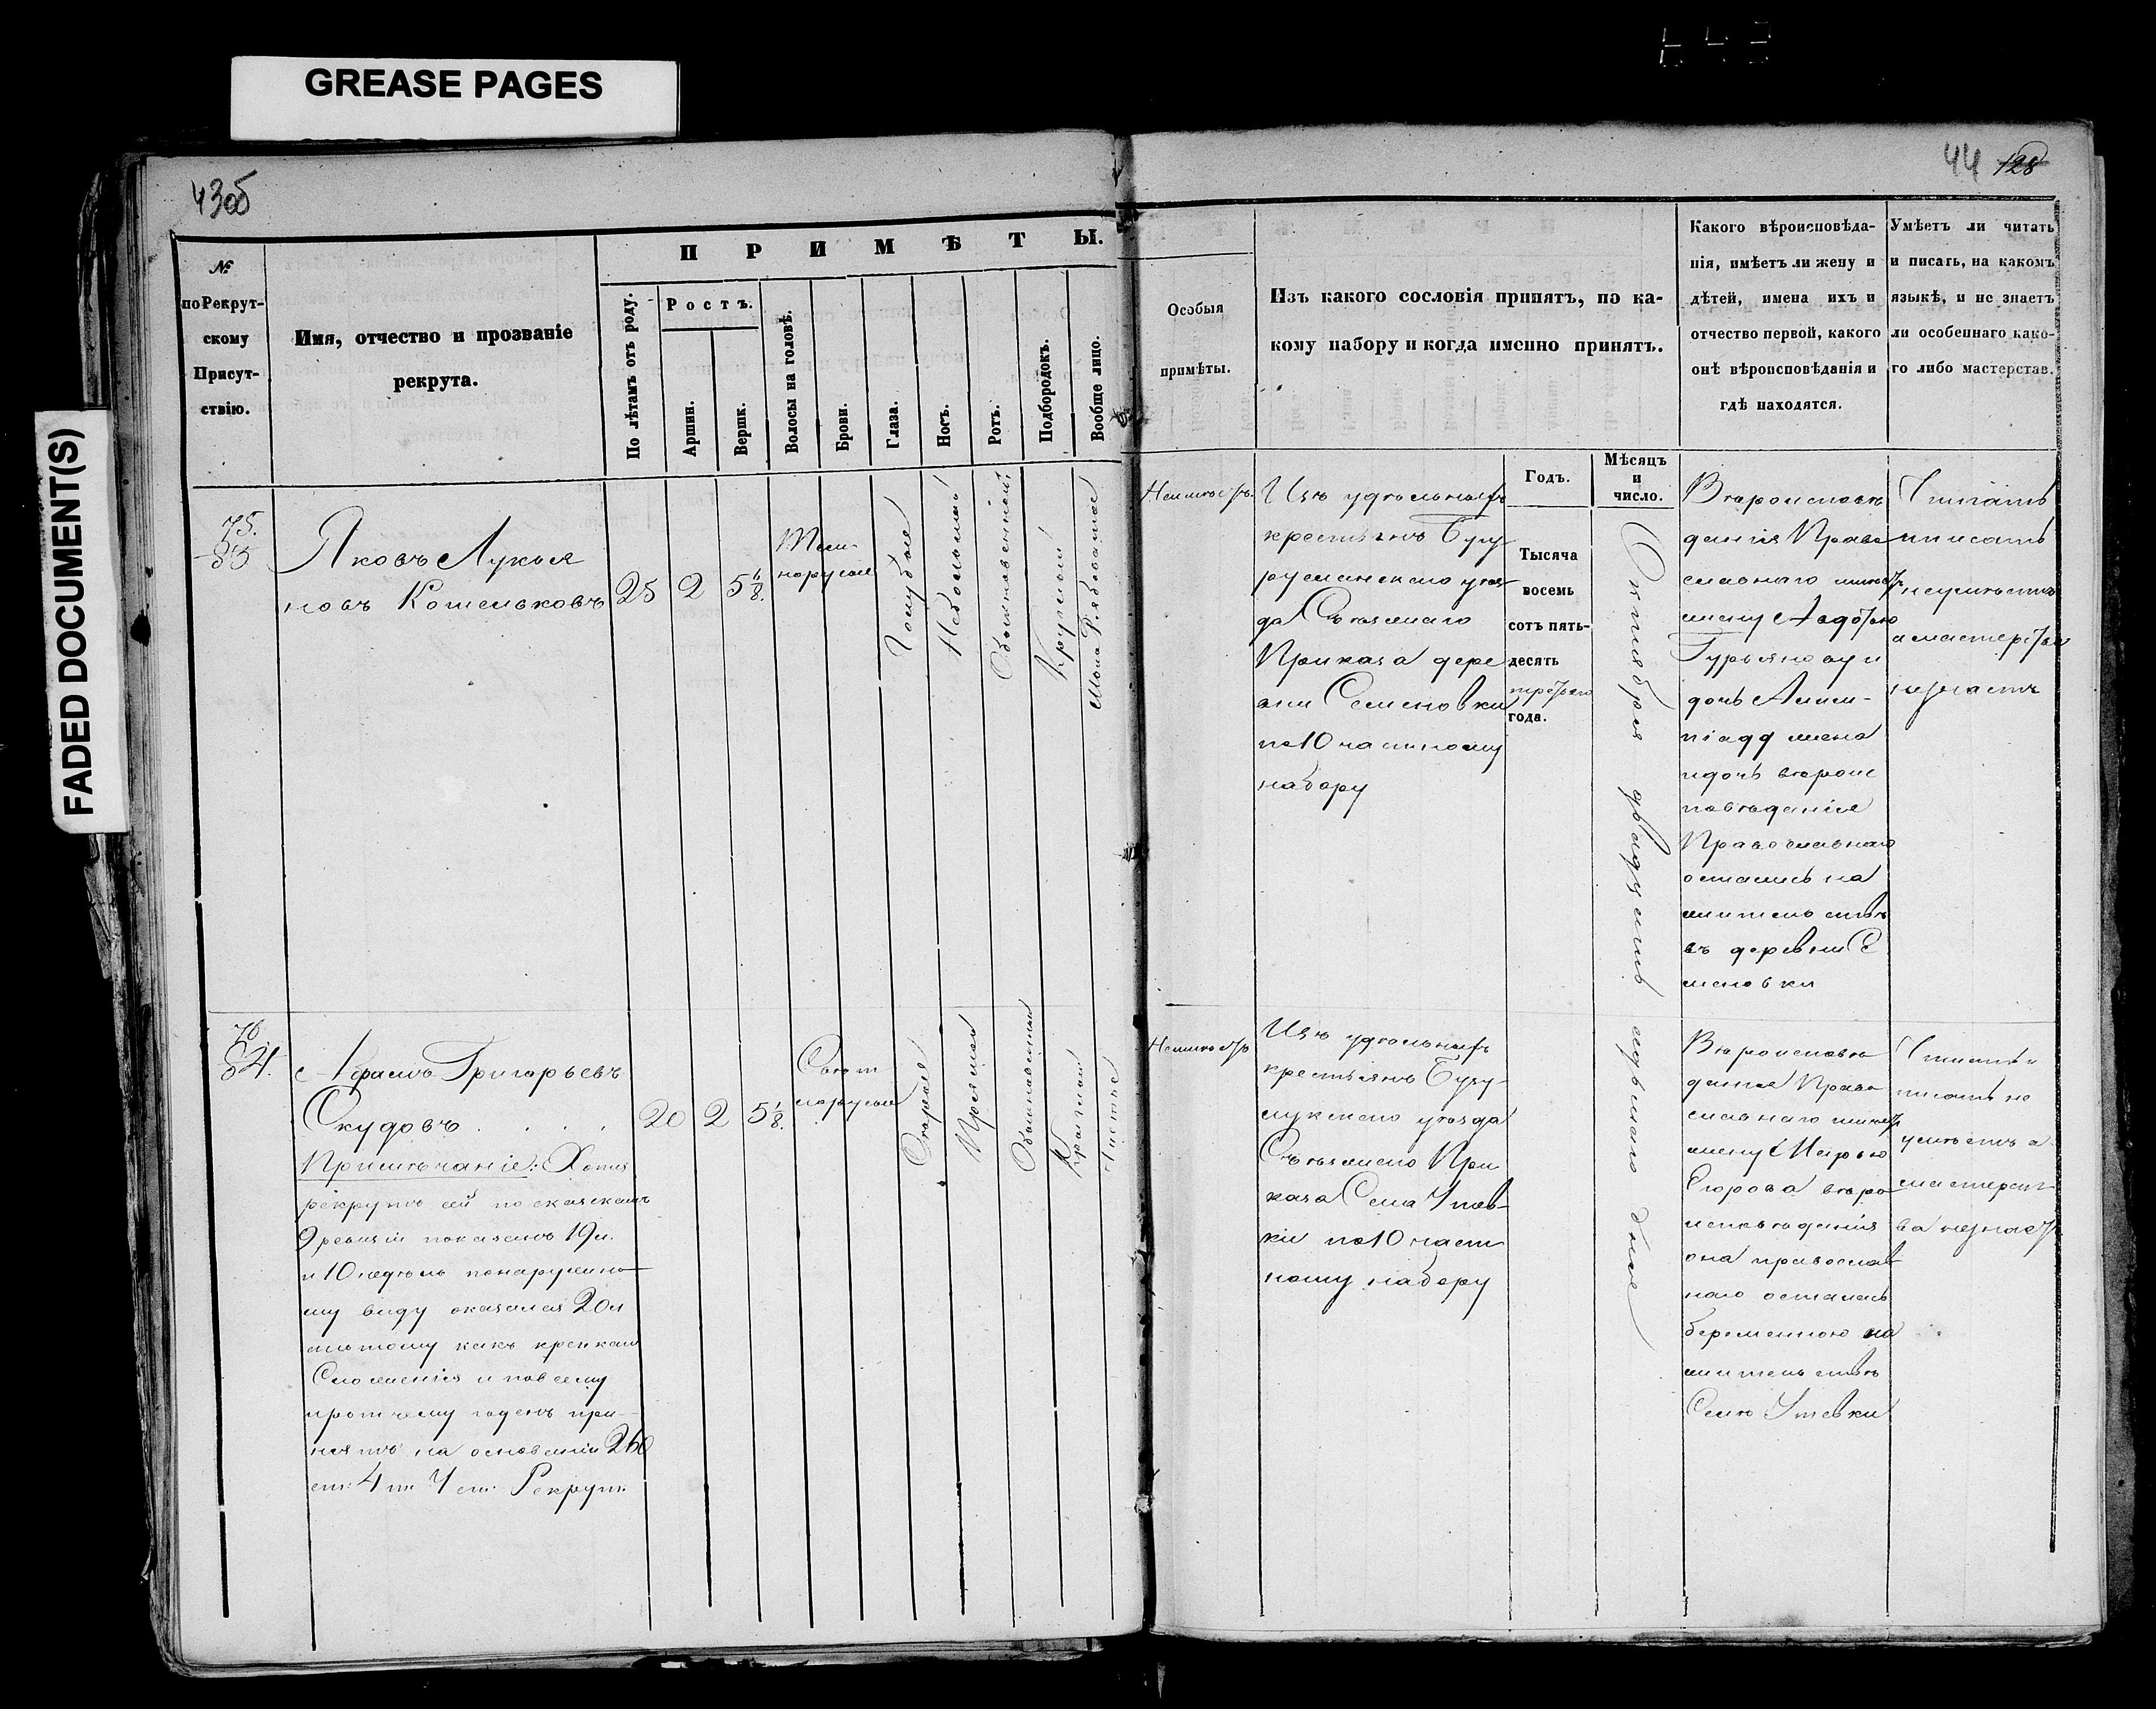 GREASE PAGES
FADED DOCUMENT(S)
43об
44 128
№ по Рекрут-
скому
Присут-
ствію.
Имя, отчество и прозваніе
рекрута.
ПРИМѢТЫ.
По лѣтамъ отъ роду.
Ростъ.
Аршин.
Вершк.
Волосы на головѣ.
Брови.
Глаза.
Носъ.
Ротъ.
Подбородокъ.
Вообще лицо.
Особыя
примѣты.
Изъ какого сословія принятъ, по ка-
кому набору и когда именно принятъ.
Годъ.
Мѣсяцъ
и
число.
Какого вѣроисповѣда-
нія, имѣетъ ли жену и
дѣтей, имена ихъ и
отчество первой, какого
онѣ вѣроисповѣданія и
гдѣ находятся.
Умѣетъ ли читать
и писать, на какомъ
языкѣ, и не знаетъ
ли особеннаго како-
го либо мастерства.
75.
83
Яковъ Лукья
новъ Кошельковъ
25
2
5 6/8.
Темн-
норусые
Голубые
Небольшой
Обыкновенный
Круглый
Рябоватое
Неимѣетъ.
Изъ удѣльныхъ
крестьянъ Бугу
русланскаго уѣз
да Съѣзжаго
Приказа дере
вни Семеновки
по 10 частному
набору
Тысяча
восемь
сотъ пять-
десять
третьяго
года.
Октября двадцать седьмаго дня
Вѣроисповѣ
данія Право
славнаго имѣетъ
жену Авдотью
Гурьянову и
дочь Алим-
піаду жена
и дочь вѣроис
повѣданія
Православнаго
остались на
жительствѣ
въ деревни Се
меновки
Читать
и писать
неумѣетъ
а мастерства
незнаетъ
76.
84.
Абрамъ Григорьевъ
Скудовъ . . . .
Примѣчаніе: Хотя
рекрутъ сей по сказкамъ
9 ревизіи показанъ 19 л.
и 10 недѣль понаружно
му виду оказался 20 л
а потому какъ крепкаго
Сложенія и повсему
протчему годенъ при-
нятъ на основаніи 260
ст: 4 т. Уст: Рекрут.
20
2
5 1/8.
Свѣт
лорусые
Сѣрые
Прямой
Обыкновенный
Круглый
Чистое
Неимѣетъ
Изъ удѣльныхъ
крестьянъ Бузу-
лукскаго уѣзда
Съѣзжаго При
каза Села Утев-
ки по 10 част
ному набору
Вѣроисповѣ
данія Право
славнаго имѣетъ
жену Марью
Егорова вѣро
исповѣданія
она православ
наго осталась
беременною на
жительствѣ
Селѣ Утевки
Читать и
писать не
умѣетъ а
мастерст
ва незнаетъ